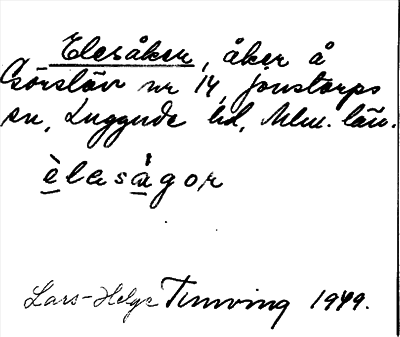 Elesåker, åker å
Görslöv nr 14, Jonstorps
sn, Luggude hd, Mlm. län.
èlesågor
Lars-Helge Timving 1949.